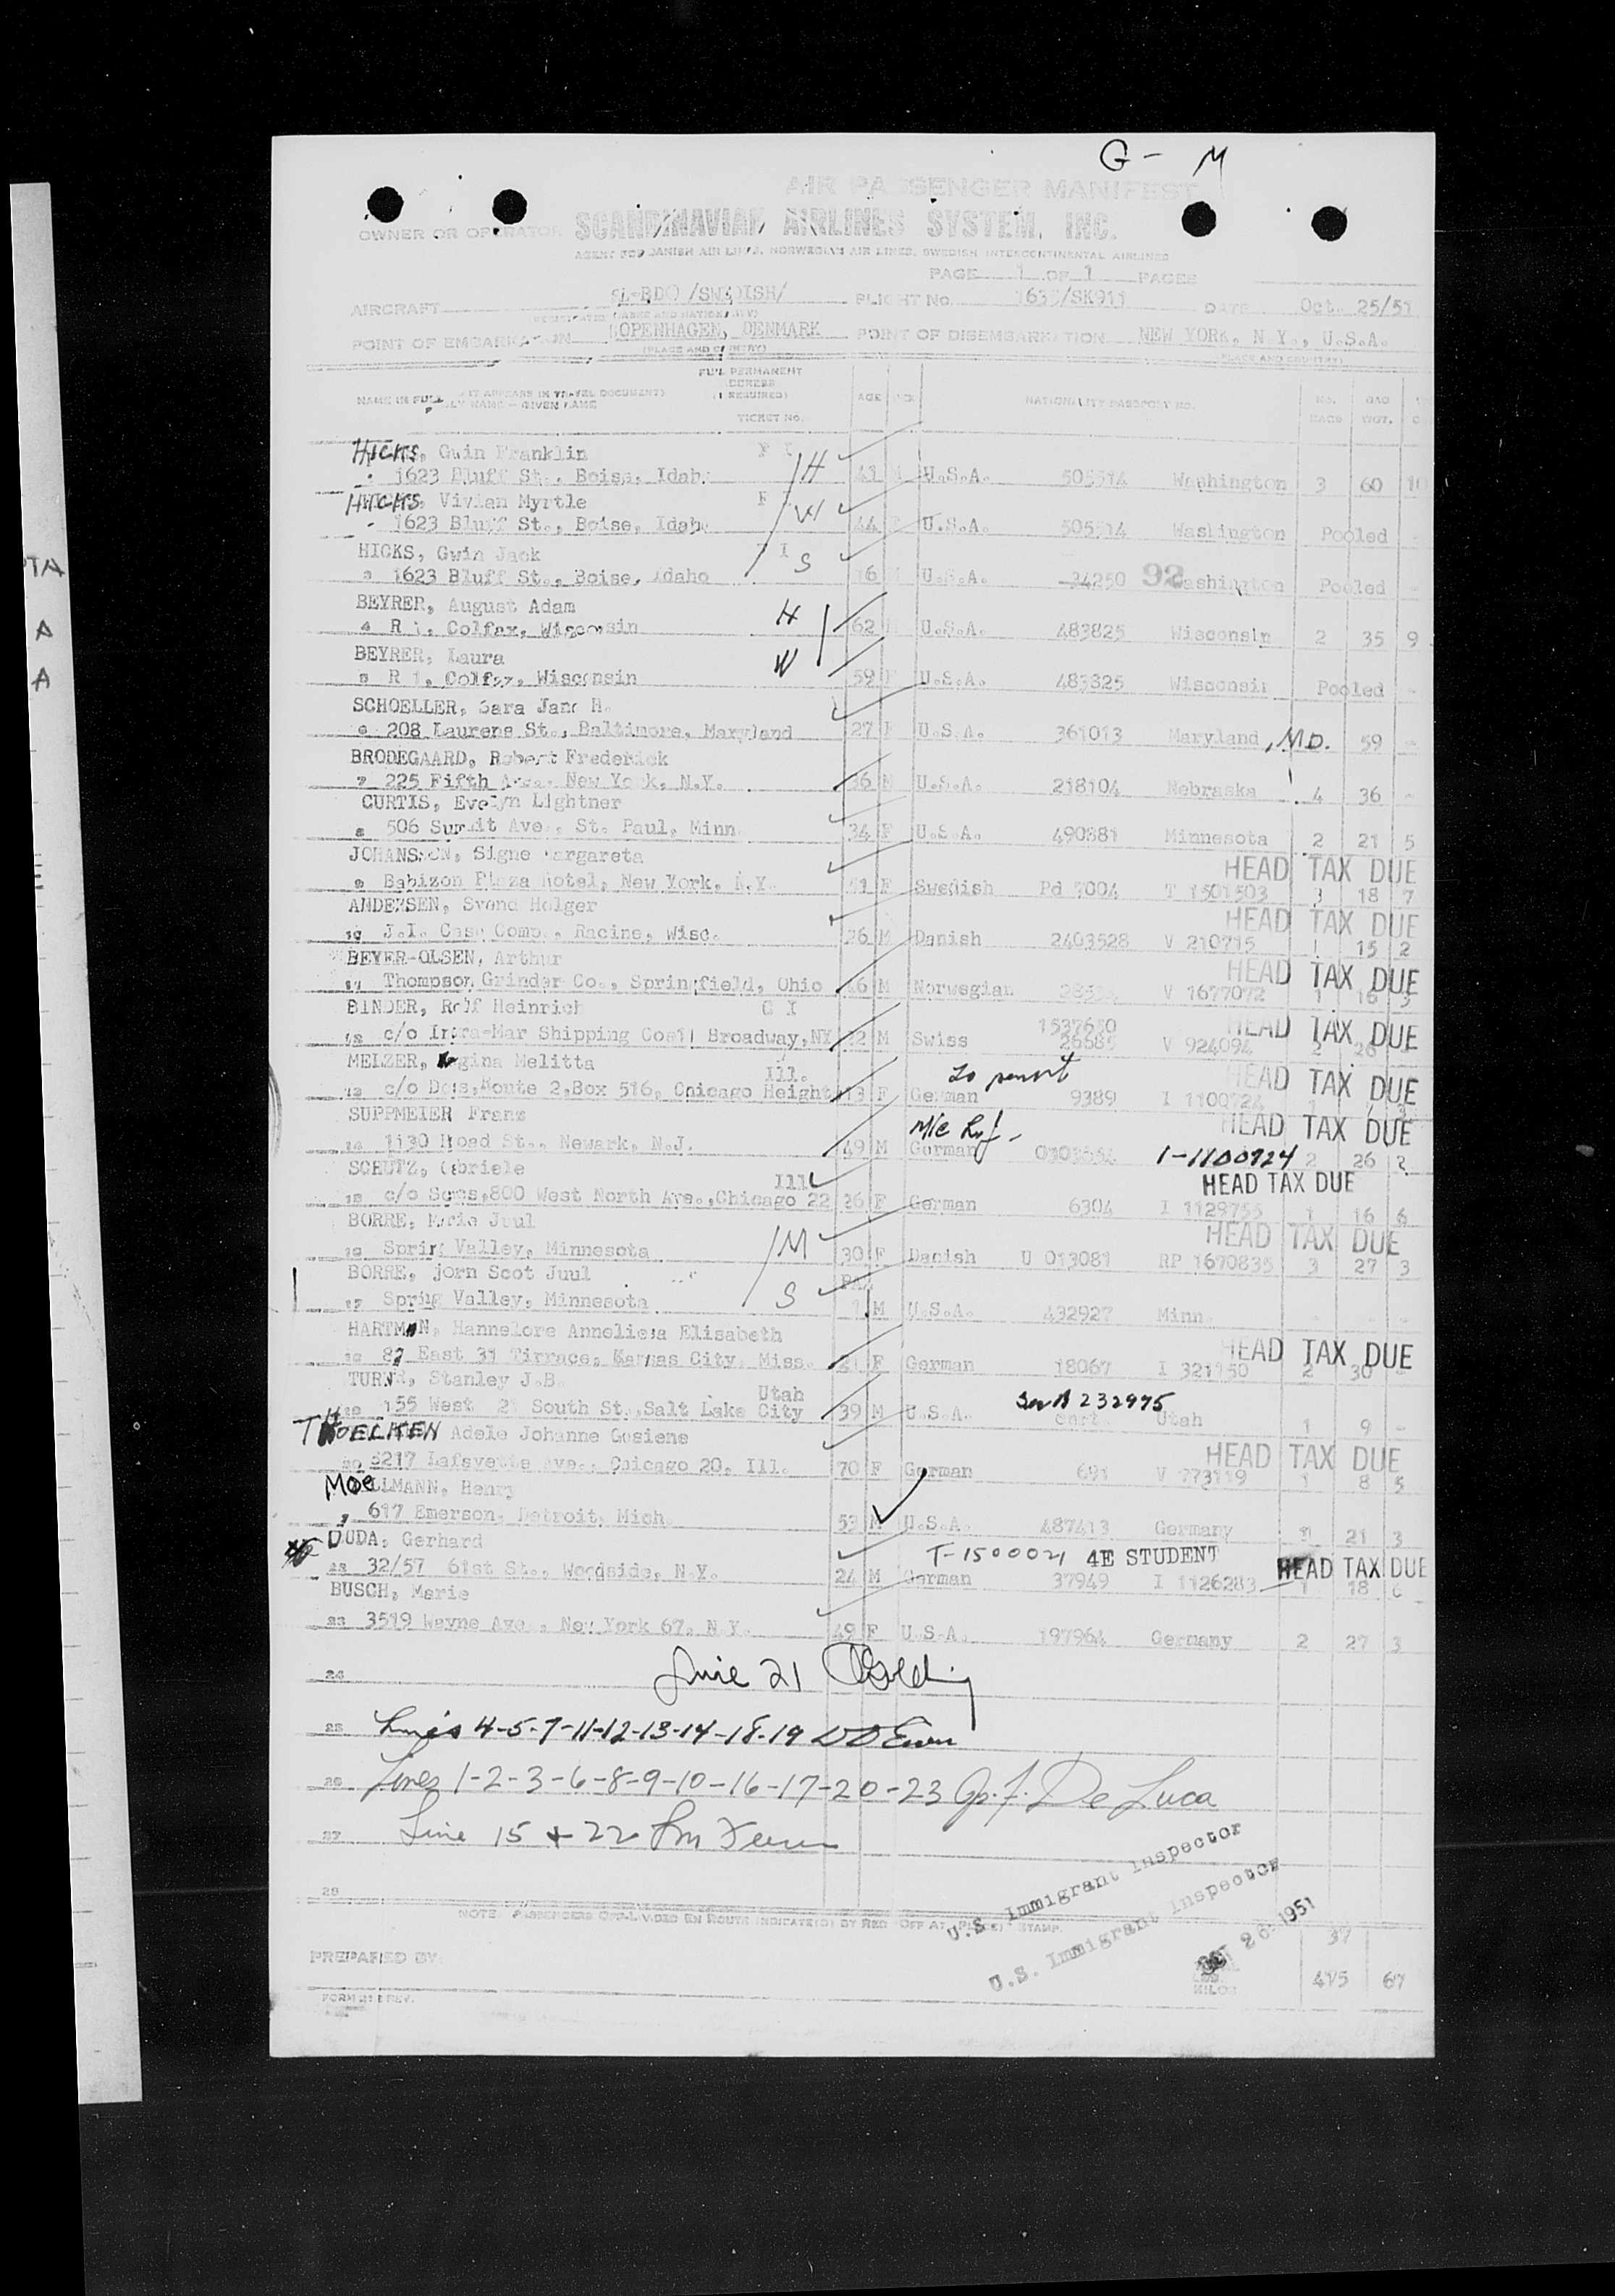 G - M
AIR PASSENGER MANIFEST
OWNER OR OPERATOR SCANDINAVIAN AIRLINES SYSTEM, INC.
AGENT FOR DANISH AIR LINES, NORWEGIAN AIR LINES, SWEDISH INTERCONTINENTAL AIRLINES
PAGE 1 OF 1 PAGES
AIRCRAFT /SWEDISH/ FLIGHT No. /SK911 DATE Oct. 25/51
POINT OF EMBARKATION COPENHAGEN, DENMARK POINT OF DISEMBARKATION NEW YORK, N.Y., U.S.A.
(PLACE AND COUNTRY) (PLACE AND COUNTRY)
FULL PERMANENT
NAME IN FULL (AS IT APPEARS IN TRAVEL DOCUMENT) (IF REQUIRED) AGE NATIONALITY PASSPORT NO. NO. BAG
FAMILY NAME — GIVEN NAME TICKET NO. BAGS WGT.
HICKS, Gwin Franklin
1623 Bluff St., Boise, Idaho H U.S.A. 505514 Washington 3 60
HICKS, Vivian Myrtle
1623 Bluff St., Boise, Idaho W 44 U.S.A. 505514 Washington Pooled -
HICKS, Gwin Jack S
3 1623 Bluff St., Boise, Idaho 16 U.S.A. 34250 92 Washington Pooled -
BEYRER, August Adam H
4 R 1, Colfax, Wisconsin 62 U.S.A. 483825 Wisconsin 2 35 9
BEYRER, Laura W
5 R 1, Colfax, Wisconsin 59 F U.S.A. 483825 Wisconsin Pooled -
SCHOELLER, Sara Jane H.
6 208 Laurens St., Baltimore, Maryland 27 F U.S.A. 361013 Maryland, MD. 59 -
BRODEGAARD, Robert Frederick
7 225 Fifth Ave., New York, N.Y. 36 M U.S.A. 218104 Nebraska 4 36 -
CURTIS, Evelyn Lightner
8 506 Summit Ave., St. Paul, Minn. 34 F U.S.A. 490881 Minnesota 2 21 5
JOHANSSON, Signe Margareta HEAD TAX DUE
9 Babizon Plaza Hotel, New York, N.Y. F Swedish Pd T 1501503 3 18 7
ANDERSEN, Svend Holger HEAD TAX DUE
10 J.I. Case Comp., Racine, Wisc. 26 M Danish 2403528 V 210715 1 15 2
BEYER-OLSEN, Arthur HEAD TAX DUE
11 Thompson Grinder Co., Springfield, Ohio M Norwegian V 1677072 1 16
BINDER, Rolf Heinrich G I 1537610 HEAD TAX DUE
12 c/o Intra-Mar Shipping Co 11 Broadway, NY M Swiss 26685 V 924094
MELZER, Regina Melitta Ill. to parent HEAD TAX DUE
13 c/o Dogs, Route 2, Box 516, Chicago Height 13 F German 9389 I 1100724
SUPPMEIER Franz HEAD TAX DUE
14 1130 Broad St., Newark, N.J. 49 M German I-1100724 2 26
SCHUTZ, Gabriele Ill HEAD TAX DUE
15 800 West North Ave., Chicago 22 26 F German 6304 I 1129755 1 16 6
BORRE, Maria Juul HEAD TAX DUE
16 Spring Valley, Minnesota M 30 F Danish U 013081 RP 1670835 3 27 3
BORRE, jorn Scot Juul
17 Spring Valley, Minnesota S 1 M U.S.A. 432927 Minn. - - -
HARTMAN, Hannelore Anneliesa Elisabeth HEAD TAX DUE
18 East 31 Tirrace, Kansas City, Miss. 21 F German 18067 I 321150 2 30 -
Stanley J.B. Utah
19 155 West 21 South St., Salt Lake City 39 M U.S.A. Utah 1 9 -
THOELCKEN Adele Johanne Gesiene HEAD TAX DUE
20 3217 Lafayette Ave., Chicago 20, Ill. 70 F German 691 V 773119 1 8 5
MOELLMANN, Henry
617 Emerson, Detroit, Mich. 53 M U.S.A. 487413 Germany 21 3
DUDA, Gerhard T-1500021 4E STUDENT HEAD TAX DUE
22 32/57 61st St., Woodside, N.Y. 24 M German 37949 I 1126283 1 18
BUSCH, Marie
23 3519 Wayne Ave., New York 67, N.Y. 49 F U.S.A. 197964 Germany 2 27 3
24 Line 21
25 Lines 4-5-7-11-12-13-14-18-19
26 Lines 1-2-3-6-8-9-10-16-17-20-23 De Luca
27 Line 15 + 22
28
NOTE: PASSENGERS OFF-LOADED EN ROUTE INDICATE(D) BY RED "OFF AT (PLACE)" STAMP.
U.S. Immigrant Inspector
U.S. Immigrant Inspector
1951
PREPARED BY 37
KILOS 67